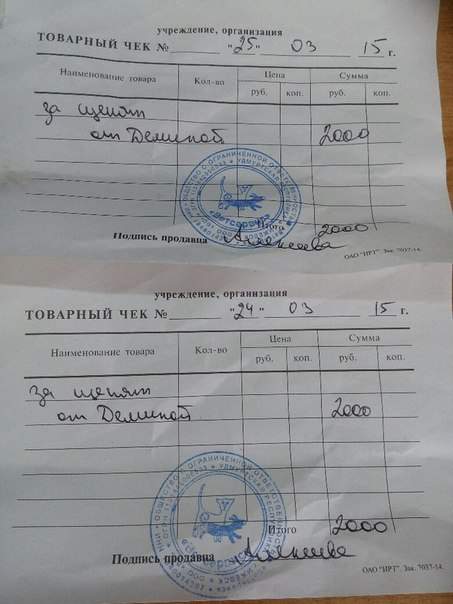 учреждение, организация
ТОВАРНЫЙ ЧЕК № "25" 03 15 г.
Наименование товара Кол-во Цена Сумма
руб. коп. руб. коп.
за щенят
от Деминой 2000
Итого 2000
Подпись продавца Алексеева
ОАО "ИРТ". Зак. 7037-14.
учреждение, организация
ТОВАРНЫЙ ЧЕК № "24" 03 15 г.
Наименование товара Кол-во Цена Сумма
руб. коп. руб. коп.
за щенят
от Деминой 2000
ОБЩЕСТВО С ОГРАНИЧЕННОЙ ОТВЕТСТВЕННОСТЬЮ
УДМУРТСКАЯ РЕСПУБЛИКА
Итого 2000
Подпись продавца Алексеева
ОАО "ИРТ". Зак. 7037-14.